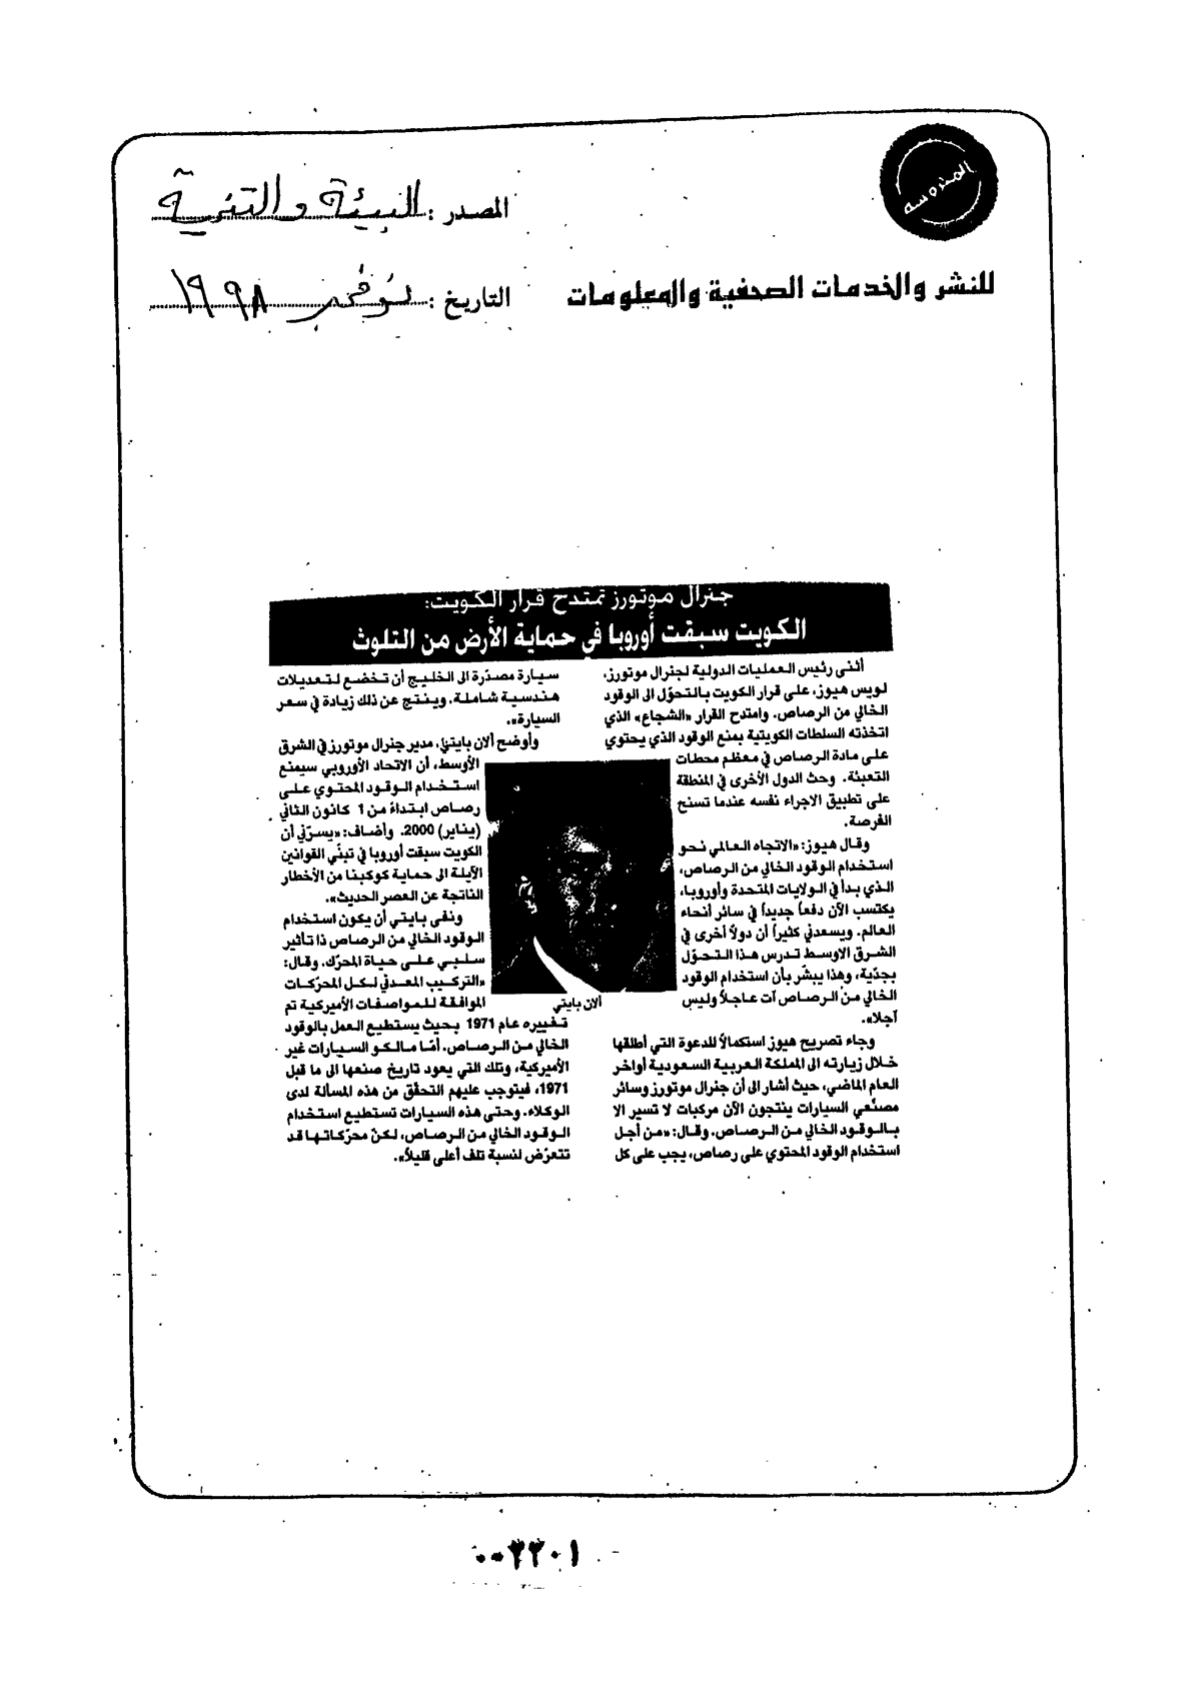 المحروسة
للنشر والخدمات الصحفية والمعلومات
المصدر : البيئة والتنمية
التاريخ : نوفمبر ١٩٩٨
جنرال موتورز تمتدح قرار الكويت:
الكويت سبقت أوروبا في حماية الأرض من التلوث
أثنى رئيس العمليات الدولية لجنرال موتورز،
لويس هيوز، على قرار الكويت بالتحوّل الى الوقود
الخالي من الرصاص. وامتدح القرار «الشجاع» الذي
اتخذته السلطات الكويتية بمنع الوقود الذي يحتوي
على مادة الرصاص في معظم محطات
التعبئة. وحث الدول الأخرى في المنطقة
على تطبيق الاجراء نفسه عندما تسنح
الفرصة.
وقال هيوز: «الاتجاه العالمي نحو
استخدام الوقود الخالي من الرصاص،
الذي بدأ في الولايات المتحدة وأوروبا،
يكتسب الآن دفعاً جديداً في سائر أنحاء
العالم. ويسعدني كثيراً أن دولاً أخرى في
الشرق الاوسط تدرس هذا التحوّل
بجدّية، وهذا يبشّر بأن استخدام الوقود
الخالي من الرصاص آت عاجلاً وليس
آجلاً».
وجاء تصريح هيوز استكمالاً للدعوة التي أطلقها
خلال زيارته الى المملكة العربية السعودية أواخر
العام الماضي، حيث أشار الى أن جنرال موتورز وسائر
مصنّعي السيارات ينتجون الآن مركبات لا تسير الا
بالوقود الخالي من الرصاص. وقال: «من أجل
استخدام الوقود المحتوي على رصاص، يجب على كل
سيارة مصدّرة الى الخليج أن تخضع لتعديلات
هندسية شاملة. وينتج عن ذلك زيادة في سعر
السيارة».
وأوضح ألان بايتي، مدير جنرال موتورز في الشرق
الأوسط، أن الاتحاد الأوروبي سيمنع
استخدام الوقود المحتوي على
رصاص ابتداءً من 1 كانون الثاني
(يناير) 2000. وأضاف: «يسرّني أن
الكويت سبقت أوروبا في تبنّي القوانين
الآيلة الى حماية كوكبنا من الأخطار
الناتجة عن العصر الحديث».
ونفى بايتي أن يكون استخدام
الوقود الخالي من الرصاص ذا تأثير
سلبي على حياة المحرّك. وقال:
«التركيب المعدني لكل المحرّكات
الموافقة للمواصفات الأميركية تم
تغييره عام 1971 بحيث يستطيع العمل بالوقود
الخالي من الرصاص. أمّا مالكو السيارات غير
الأميركية، وتلك التي يعود تاريخ صنعها الى ما قبل
1971، فيتوجب عليهم التحقّق من هذه المسألة لدى
الوكلاء. وحتى هذه السيارات تستطيع استخدام
الوقود الخالي من الرصاص، لكنّ محرّكاتها قد
تتعرّض لنسبة تلف أعلى قليلاً».
ألان بايتي